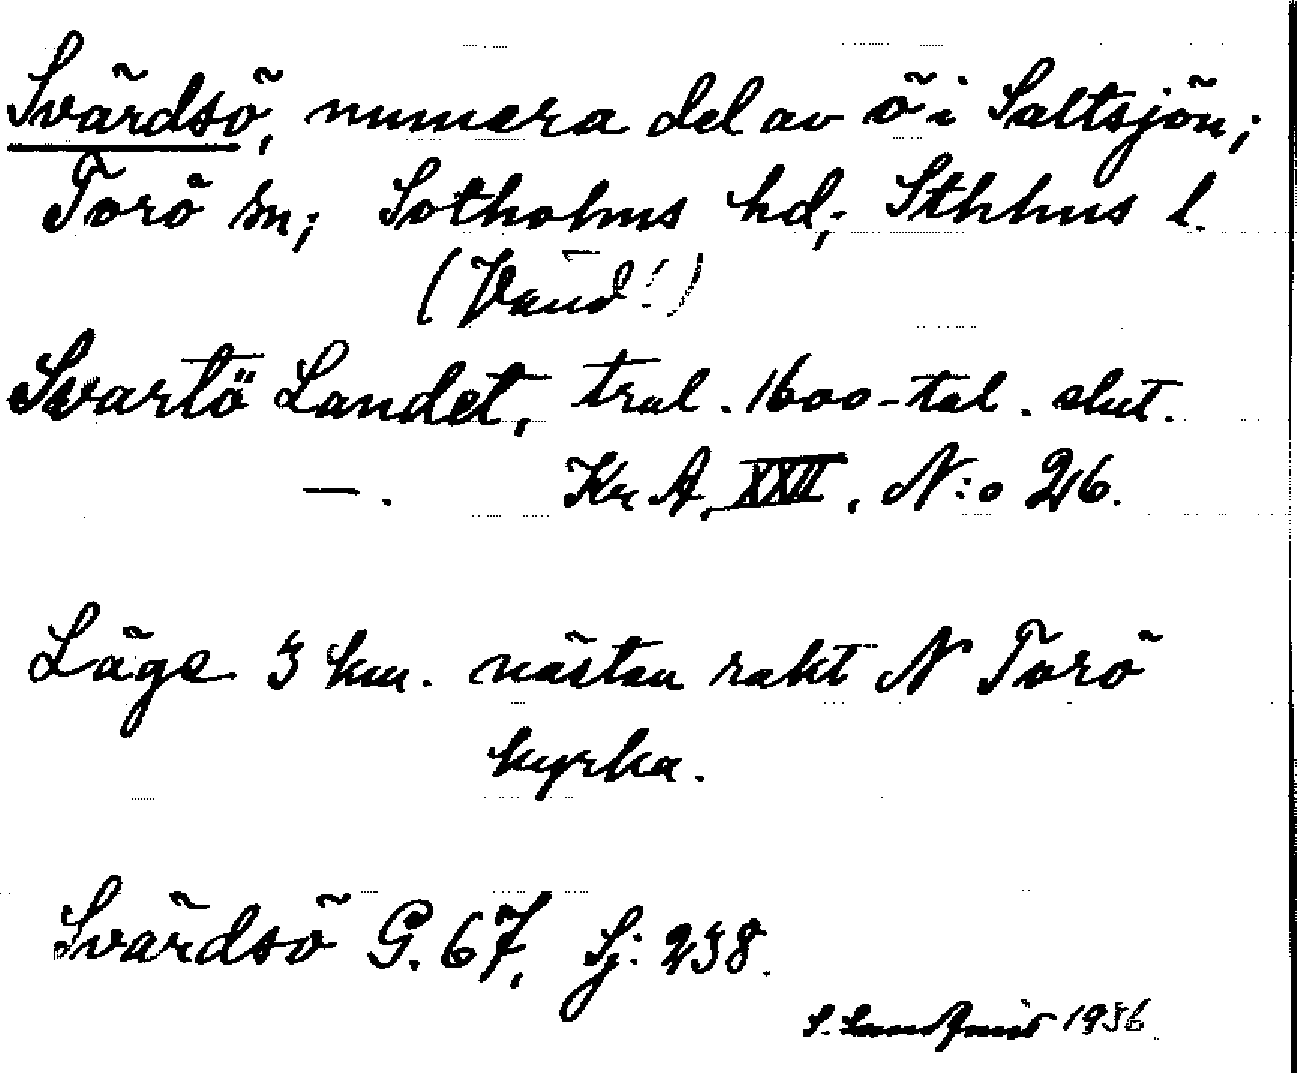 Svärdsö, numera del av ö i Saltsjön;
Torö sn; Sotholms hd; Sthhus l.
(Vänd!)
Svartö Landet, tral. 1600-tal. slut.
—. Kr A, XXII, N:o 26.
Läge 3 km. nästan rakt N Torö
kyrka.
Svärdsö G. 67, Sj: 238.
S. 1936.